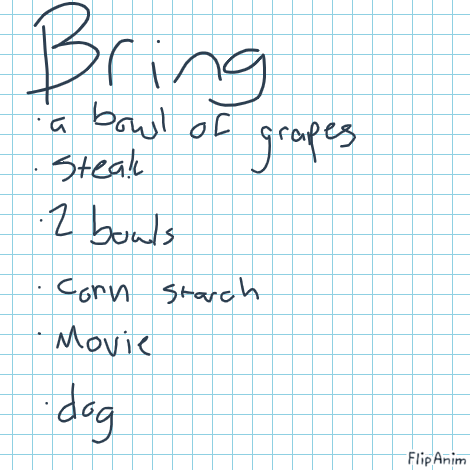 Bring
· a bowl of grapes
· steak
· 2 bowls
· corn starch
· Movie
· dog
FlipAnim